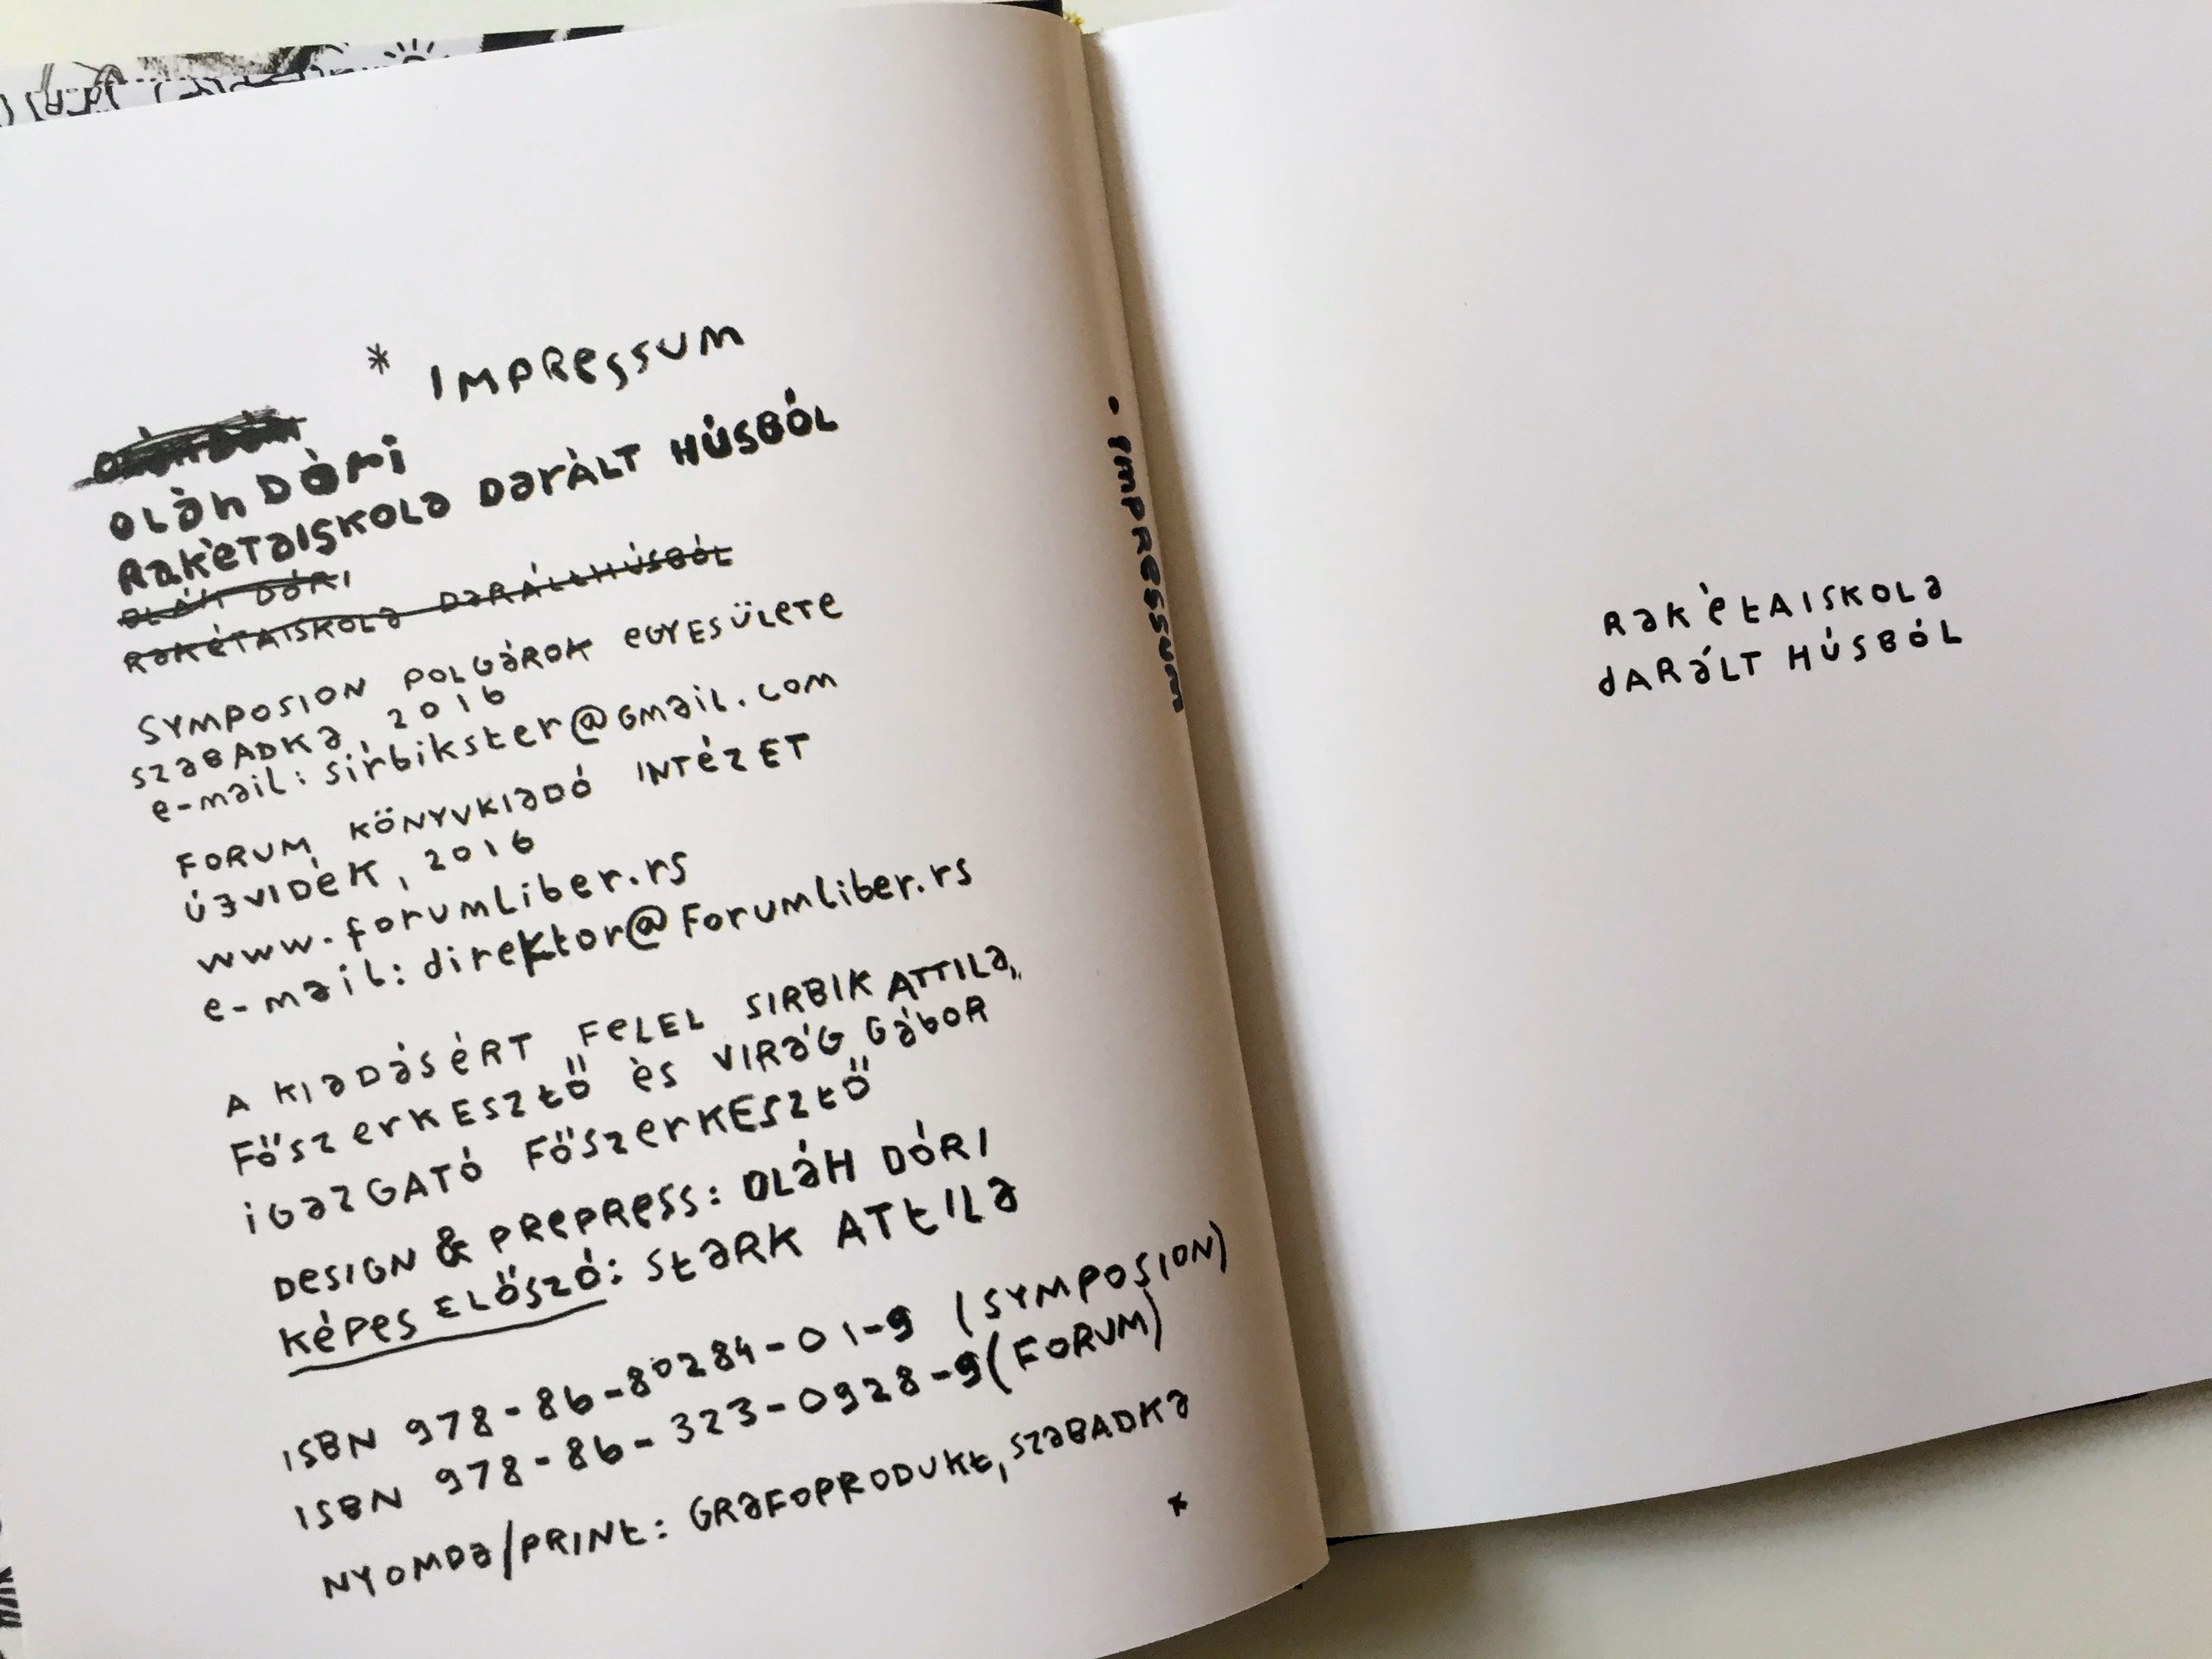 * IMPRESSUM
OLÀH DÒRI
RAKÈTAISKOLA DARÀLT HÚSBÓL
OLÁH DÓRI
RAKÉTAISKOLA DARÁLT HÚSBÓL
SYMPOSION POLGÁROK EGYESÜLETE
SZABADKA, 2016
e-mail: sirbikster@gmail.com
FORUM KÖNYVKIADÓ INTÉZET
ÚJVIDÉK, 2016
www.forumliber.rs
e-mail: direktor@forumliber.rs
A KIADÁSÉRT FELEL SIRBIK ATTILA,
FŐSZERKESZTŐ ÈS VIRÁG GÁBOR
IGAZGATÓ FŐSZERKESZTŐ
DESIGN & PREPRESS: OLÁH DÓRI
KÉPES ELŐSZÓ: STARK ATTILA
ISBN 978-86-80284-01-9 (SYMPOSION)
ISBN 978-86-323-0928-9 (FORUM)
NYOMDA/PRINT: GRAFOPRODUKT, SZABADKA
*
• IMPRESSUM
RAKÈTAISKOLA
DARÁLT HÚSBÓL